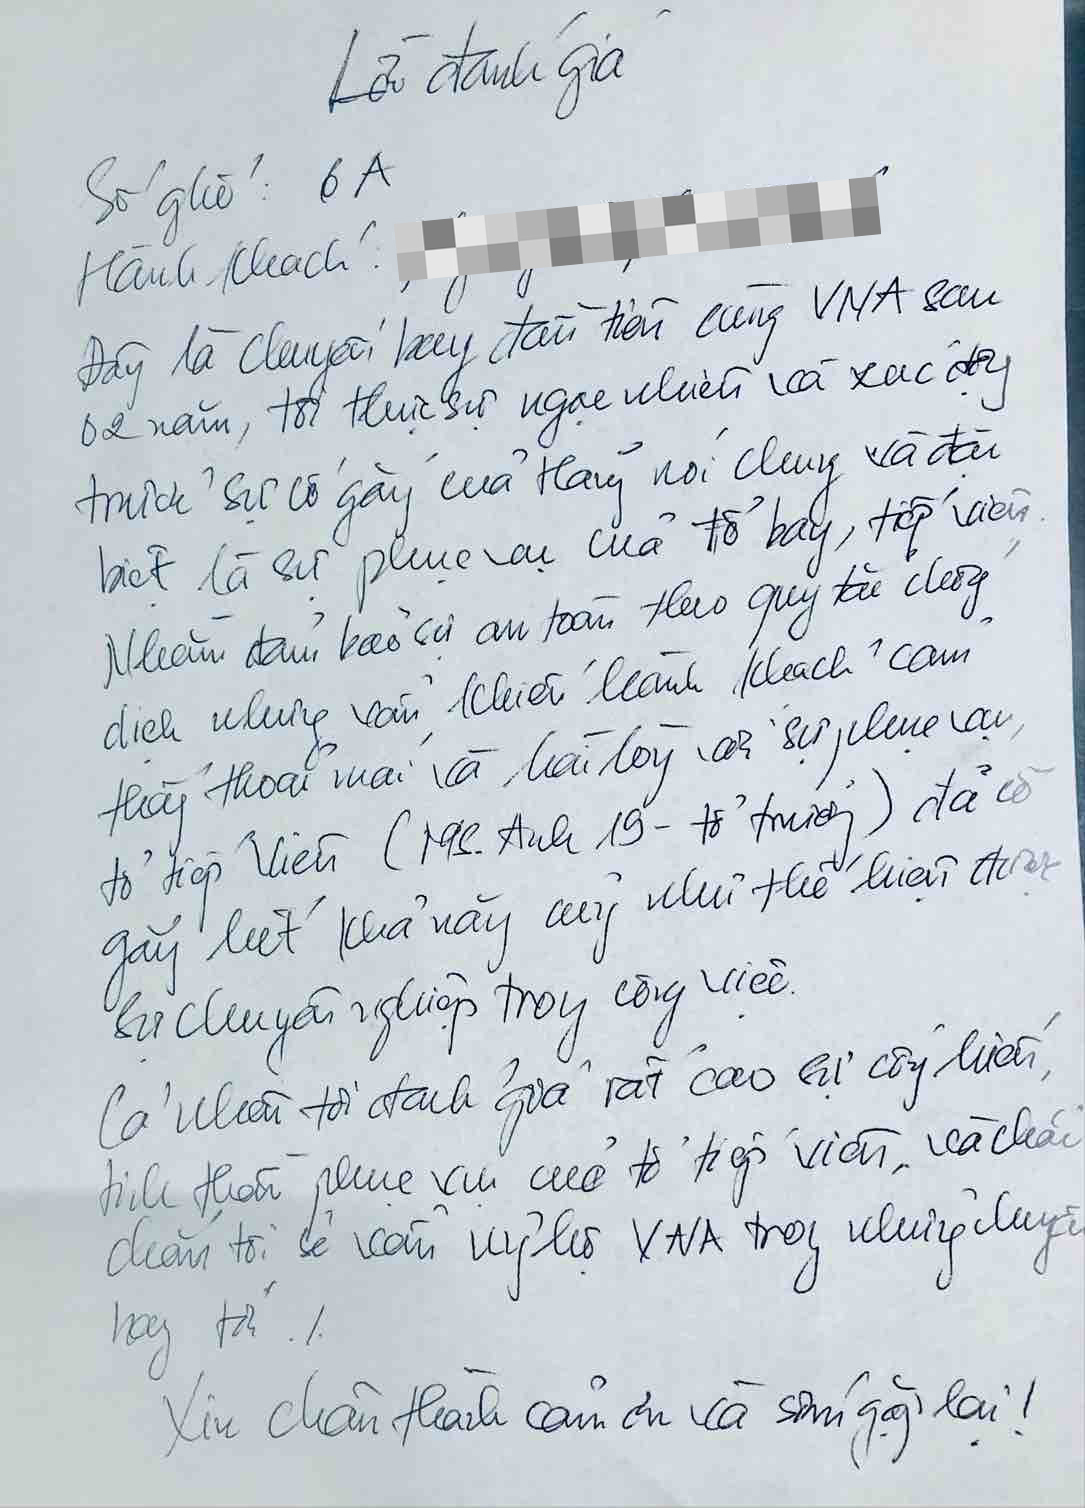 Lời đánh giá
Số ghế: 6A
Hành khách:
Đây là chuyến bay đầu tiên cùng VNA sau
02 năm, tôi thực sự ngạc nhiên và xúc động
trước sự cố gắng của Hãng nói chung và đặc
biệt là sự phục vụ của tổ bay, tiếp viên.
Nhằm đảm bảo sự an toàn theo quy tắc chống
dịch nhưng vẫn khiến hành khách cảm
thấy thoải mái và hài lòng với sự phục vụ,
tổ tiếp viên (Ms. Anh 19 - tổ trưởng) đã cố
gắng hết khả năng cũng như thể hiện được
sự chuyên nghiệp trong công việc.
Cá nhân tôi đánh giá rất cao sự cống hiến,
tinh thần phục vụ của tổ tiếp viên, và chắc
chắn tôi sẽ vẫn ủng hộ VNA trong những chuyến
bay tới ./.
Xin chân thành cảm ơn và sớm gặp lại!